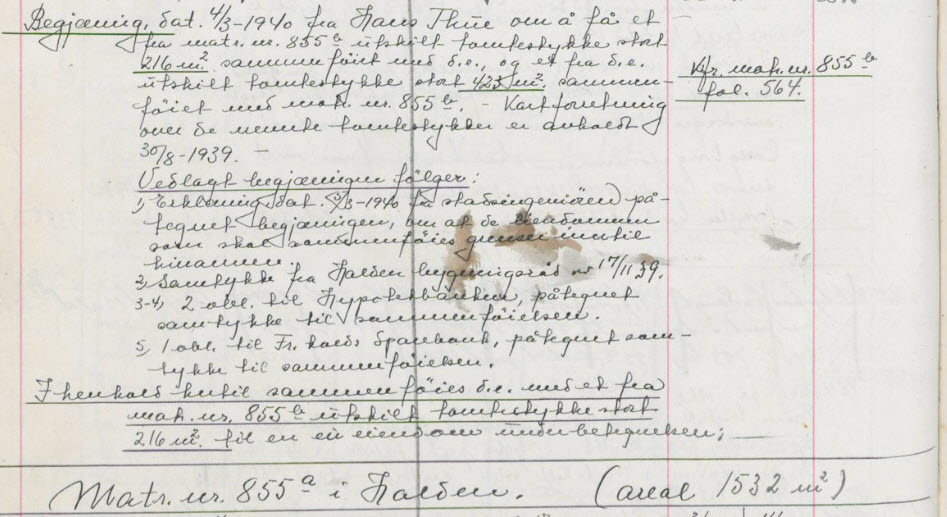 Begjæring, dat. 4/3-1940 fra Hans Thue om å få et
fra matr. nr. 855 b utskilt tomtestykke stort
216 m². sammenföiet med d.e., og et fra d.e.
utskilt tomtestykke stort 423 m². sammen-
föiet med matr. nr. 855 b. - Kartforretning
over de nevnte tomtestykker er avholdt
30/8-1939. -
Kfr. matr. nr. 855 b
fol. 564.
Vedlagt begjæringen fölger:
1, Erklæring dat. /3-1940 fra stadsingeniören på-
tegnet begjæringen, om at de eiendommer
som skal sammenföies grenser inntil
hinannen.
2, Samtykke fra Halden bygningsråd 17/11.39.
3-4, 2 obl. til Hypotekbanken, påtegnet
samtykke til sammenföielsen.
5, 1 obl. til Fr.halds Sparebank, påtegnet sam-
tykke til sammenföielsen.
I henhold hertil sammenföies d.e. med et fra
matr. nr. 855 b utskilt tomtestykke stort
216 m². til en eiendom under betegnelsen;
Matr. nr. 855 a i Halden. (areal 1532 m²)